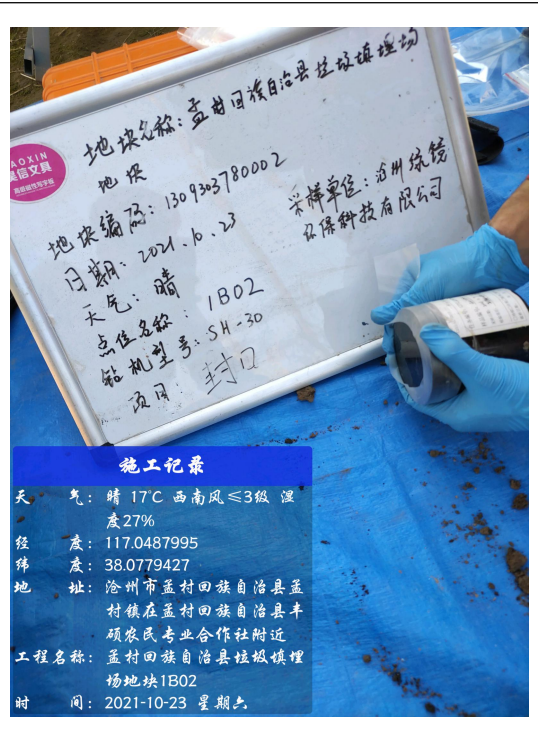 地块名称：孟村回族自治县垃圾填埋场
地块
地块编码：1309303780002
日期：2021.10.23
采样单位：沧州绿镜
环保科技有限公司
天气：晴
点位名称：1B02
钻机型号：SH-30
项目：封口
AOXIN
信文具
高级磁性写字板
施工记录
天 气：晴 17℃ 西南风≤3级 湿
度27%
经 度：117.0487995
纬 度：38.0779427
地 址：沧州市孟村回族自治县孟
村镇在孟村回族自治县丰
硕农民专业合作社附近
工程名称：孟村回族自治县垃圾填埋
场地块1B02
时 间：2021-10-23 星期六